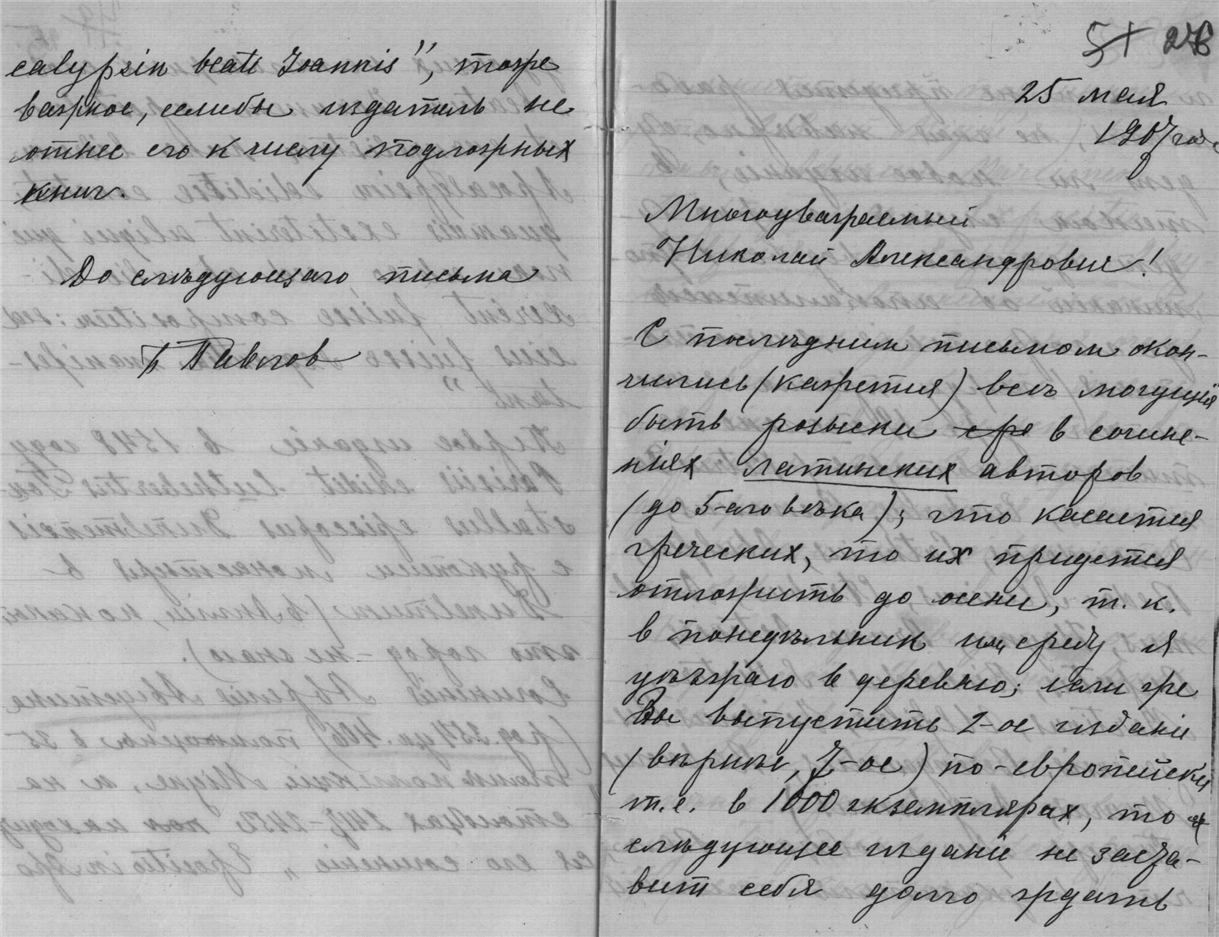 calypsin beati Ioannis", тоже
важное, если бы издатель не
отнес его к числу подложных
книг.
До слѣдующаго письма
П Павлов
5+ 276
25 мая
1907 год
Многоуважаемый
Николай Александрович!
С послѣдним письмом окон-
чились (кажется) всѣ могущія
быть розыски в сочине-
ніях латинских авторов
(до 5-аго вѣка); что касается
греческих, то их придется
отложить до осени, т. к.
в понедѣльник или среду я
уѣзжаю в деревню; если же
Вы выпустите 2-ое изданіе
(вѣрнѣе, 7-ое) по-европейски
т.е. в 1000 экземплярах, то и
слѣдующее изданіе не заста-
вит себя долго ждать